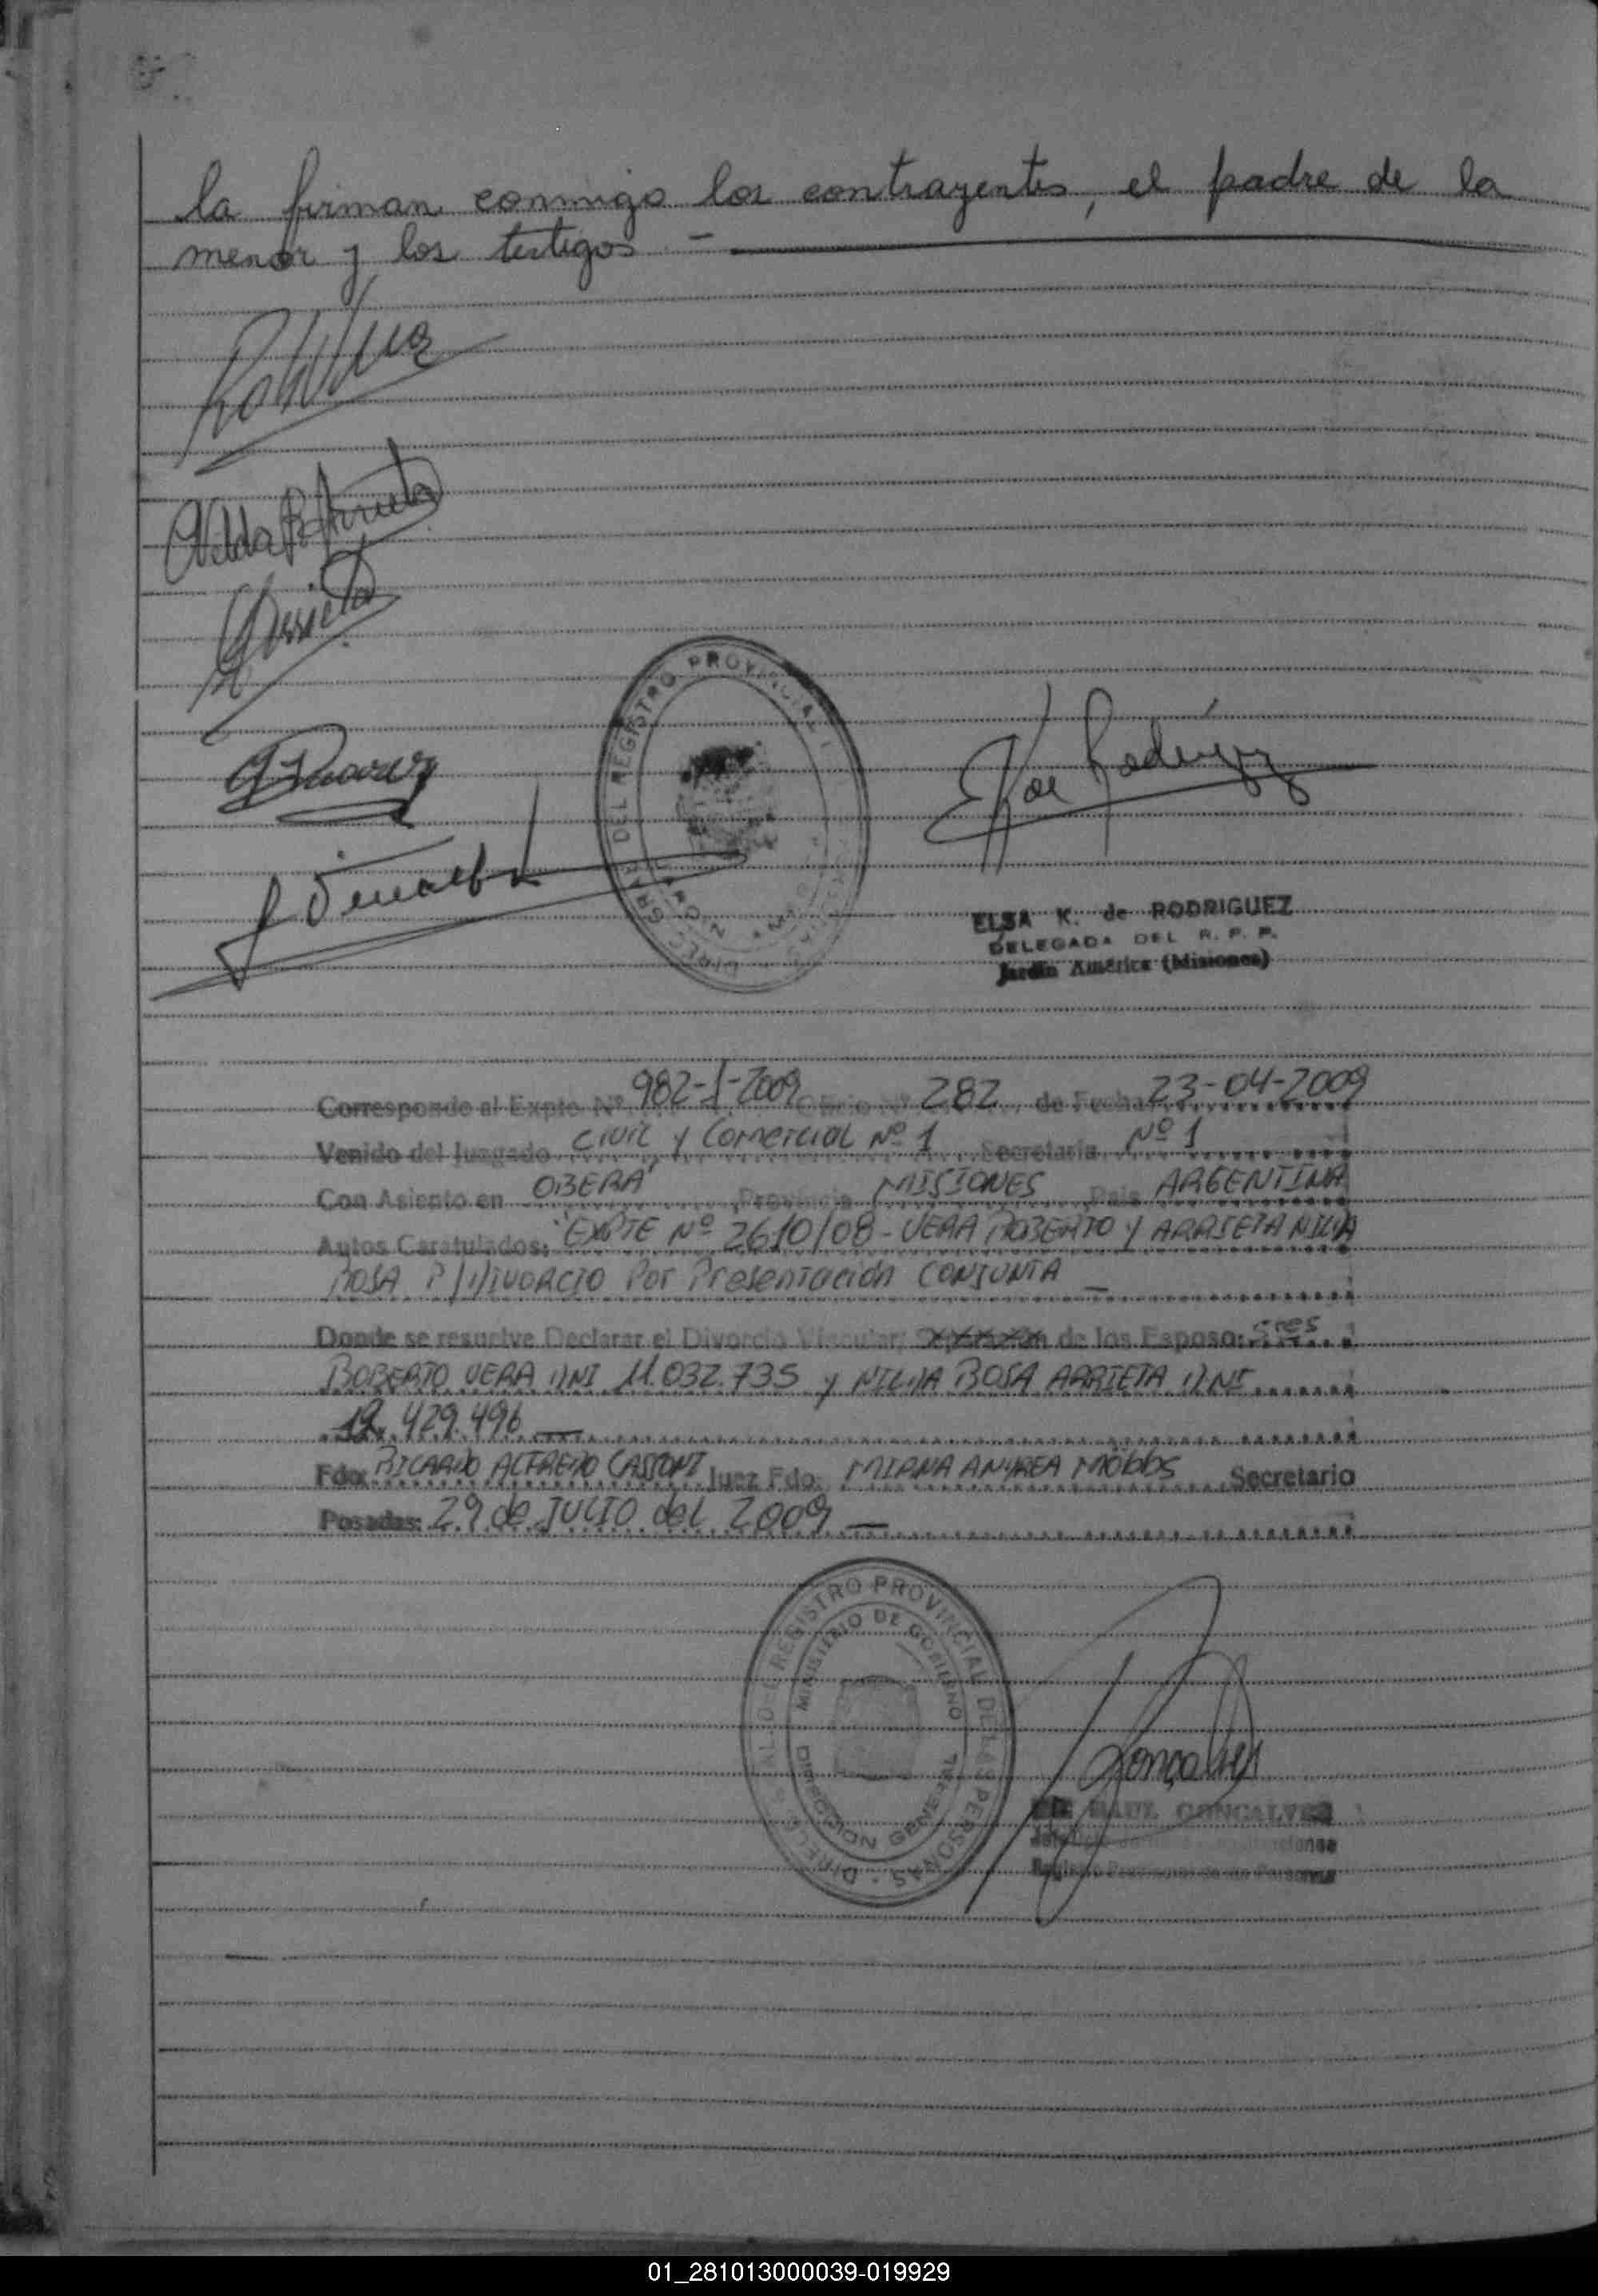 la firman conmigo los contrayentes, el padre de la
menor y los testigos —
Nilda R Arrieta
Arrieta
E K de Rodriguez
DIREC GRAL DEL REGISTRO PROVINCIAL
ELSA K. de RODRIGUEZ
DELEGADA DEL R. P. P.
Jardín América (Misiones)
Corresponde al Expte Nº 982-I-2009 Oficio Nº 282, de Fecha 23-04-2009
Venido del Juzgado CIVIL y Comercial Nº 1 Secretaria Nº 1
Con Asiento en OBERÁ Provincia MISIONES Pais ARGENTINA
Autos Caratulados: EXPTE Nº 2610/08 - VERA ROBERTO y ARRIETA NILDA
ROSA P/DIVORCIO Por Presentación CONJUNTA —
Donde se resuelve Declarar el Divorcio Vincular; Separación de los Esposo: ..res
ROBERTO VERA DNI 11.032.735 y NILDA ROSA ARRIETA DNI
429.496 —
Fdo: RICARDO ALFREDO CASSONI Juez Fdo: MIRNA ANDREA Möbbs Secretario
Posadas: 29 de JULIO del 2009 —
DIREC GRAL DEL REGISTRO PROVINCIAL DE LAS PERSONAS
MINISTERIO DE GOBIERNO
DIRECCION GENERAL
Gonçalves
RAUL GONCALVES
01_281013000039-019929